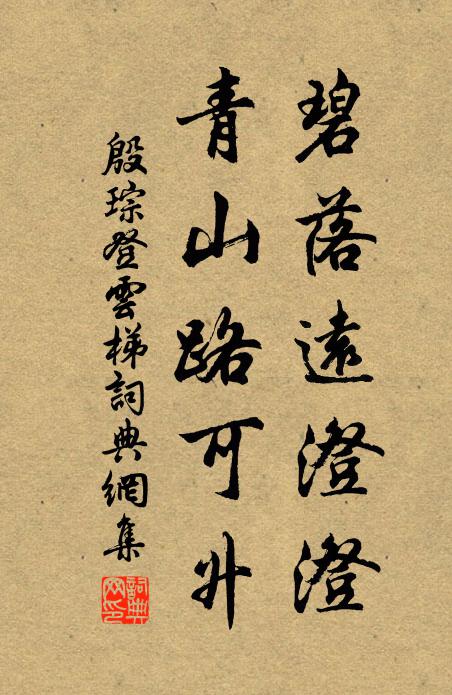 碧落遠澄澄
青山路可升
殷琮登雲梯詞典網集
詞典网印